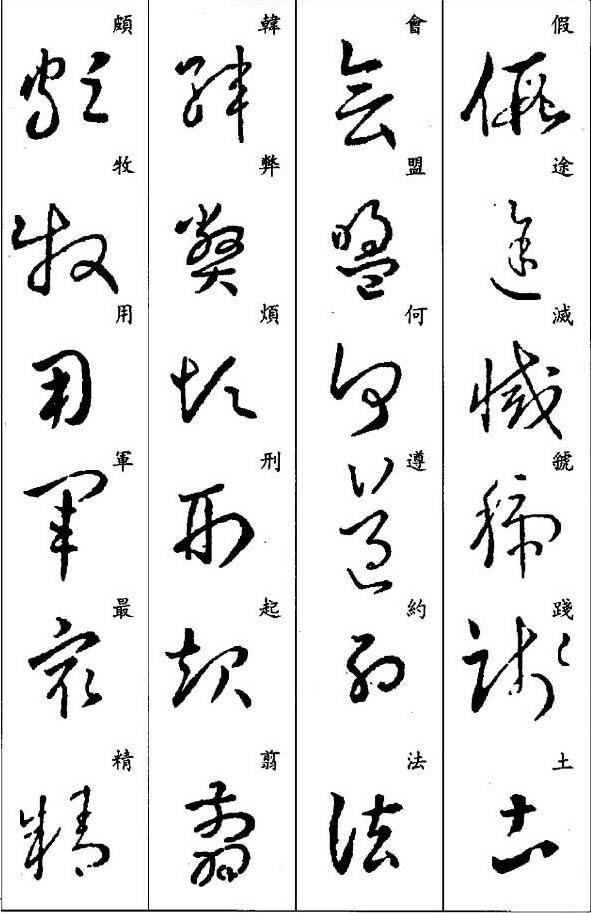 假途滅虢踐土
會盟何遵約法
韓弊煩刑起翦
頗牧用軍最精